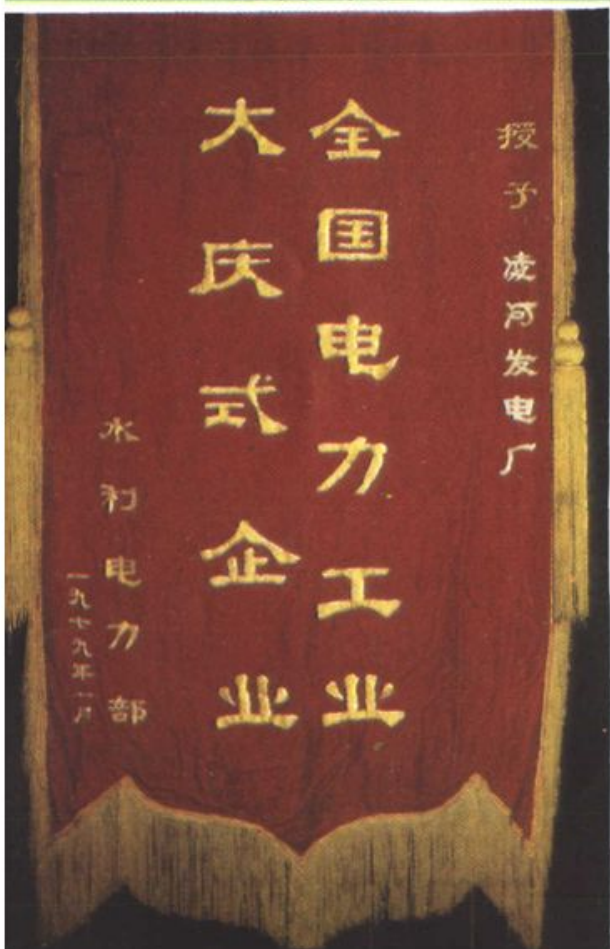 授予 凌河发电厂
全国电力工业
大庆式企业
水利电力部
一九七九年一月